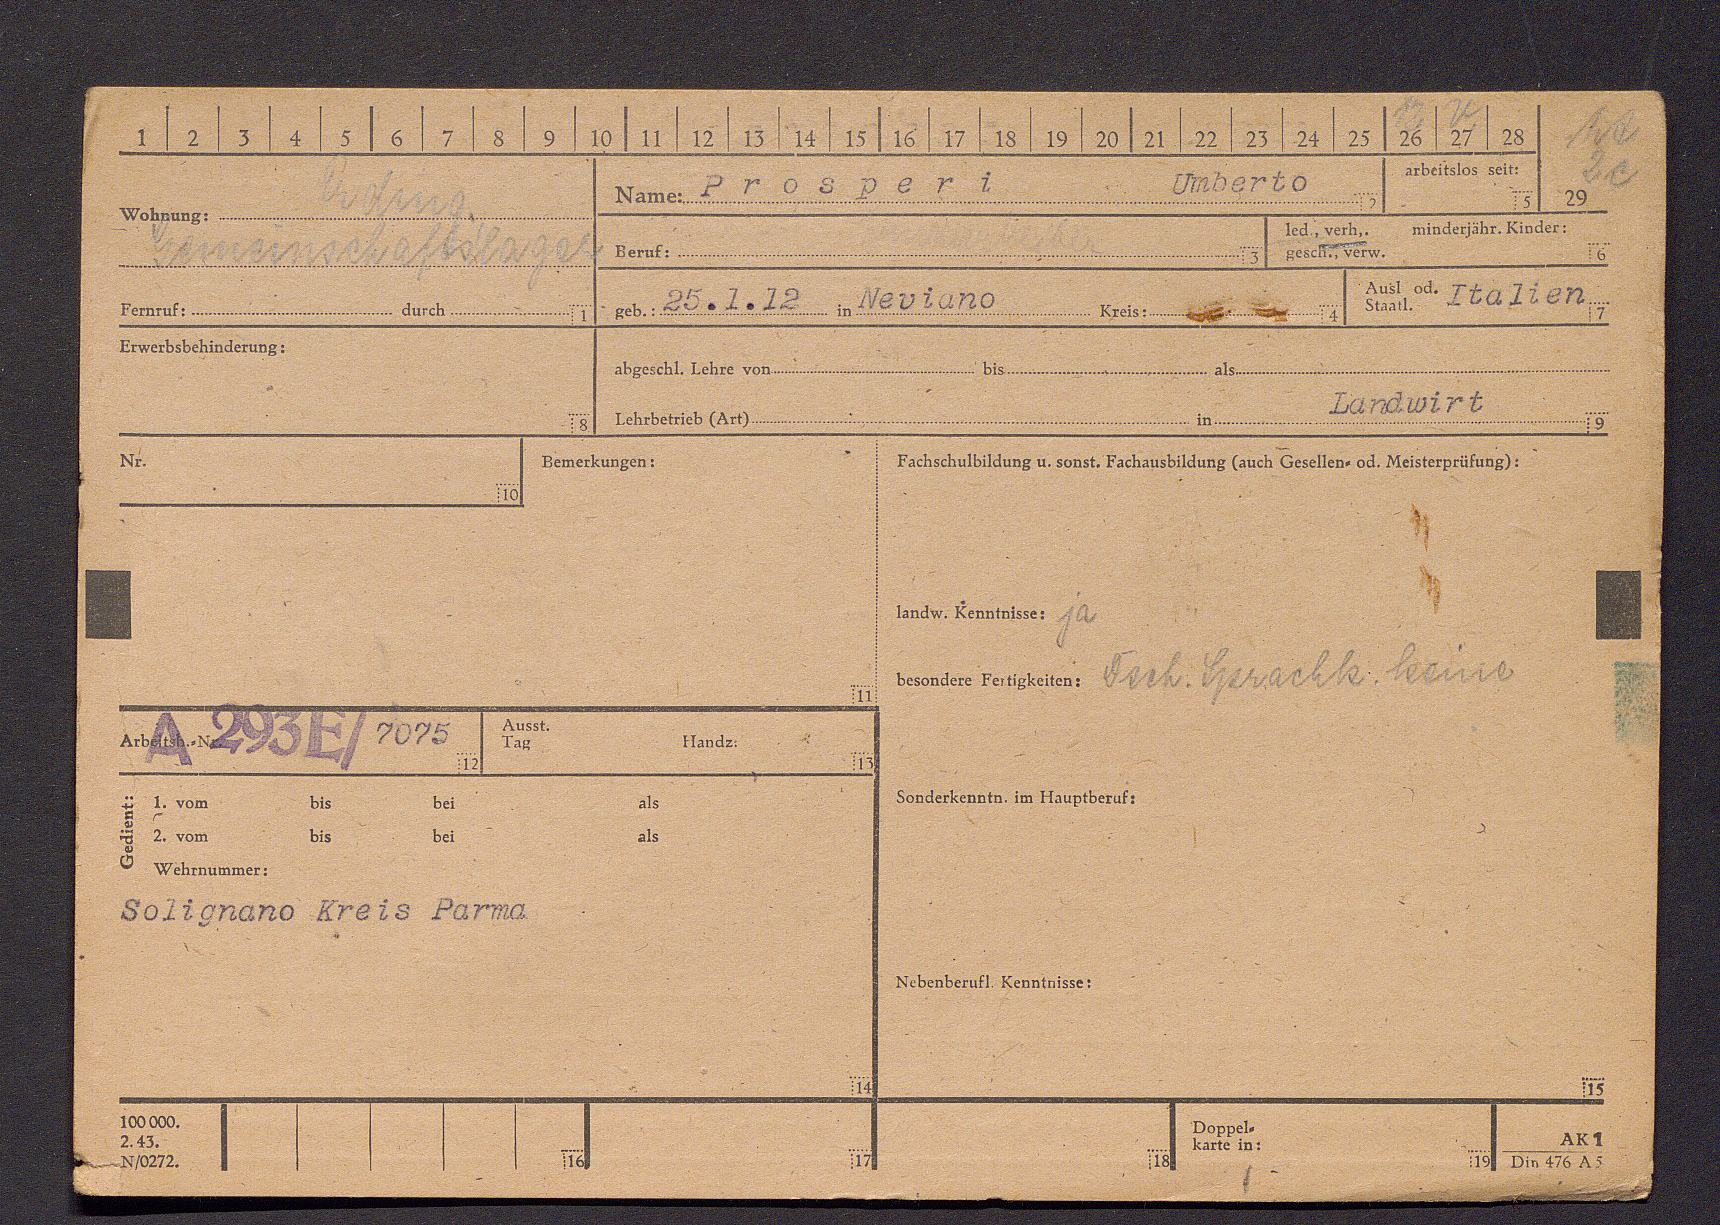 1 2 3 4 5 6 7 8 9 10 11 12 13 14 15 16 17 18 19 20 21 22 23 24 25 26 27 28
29
Wohnung: Erding,
Gemeinschaftslager
Fernruf: durch 1
Name: Prosperi Umberto 2
arbeitslos seit: 5
Beruf: 3
led., verh,. minderjähr. Kinder:
gesch., verw. 6
geb.: 25.1.12 in Neviano Kreis: 4
Ausl od. Staatl. Italien 7
Erwerbsbehinderung: 8
abgeschl. Lehre von bis als
Landwirt
Lehrbetrieb (Art) in 9
Nr. 10
Bemerkungen: 11
Fachschulbildung u. sonst. Fachausbildung (auch Gesellen- od. Meisterprüfung):
landw. Kenntnisse: ja
besondere Fertigkeiten: Sprachk. keine
Arbeitsb.-Nr. A 293E/ 7075 12
Ausst. Tag Handz: 13
Sonderkenntn. im Hauptberuf:
Gedient:
1. vom bis bei als
2. vom bis bei als
Wehrnummer:
Solignano Kreis Parma
14
Nebenberufl. Kenntnisse:
15
100 000.
2. 43.
N/0272.
16 17 18
Doppel-
karte in: 19
AK 1
Din 476 A 5